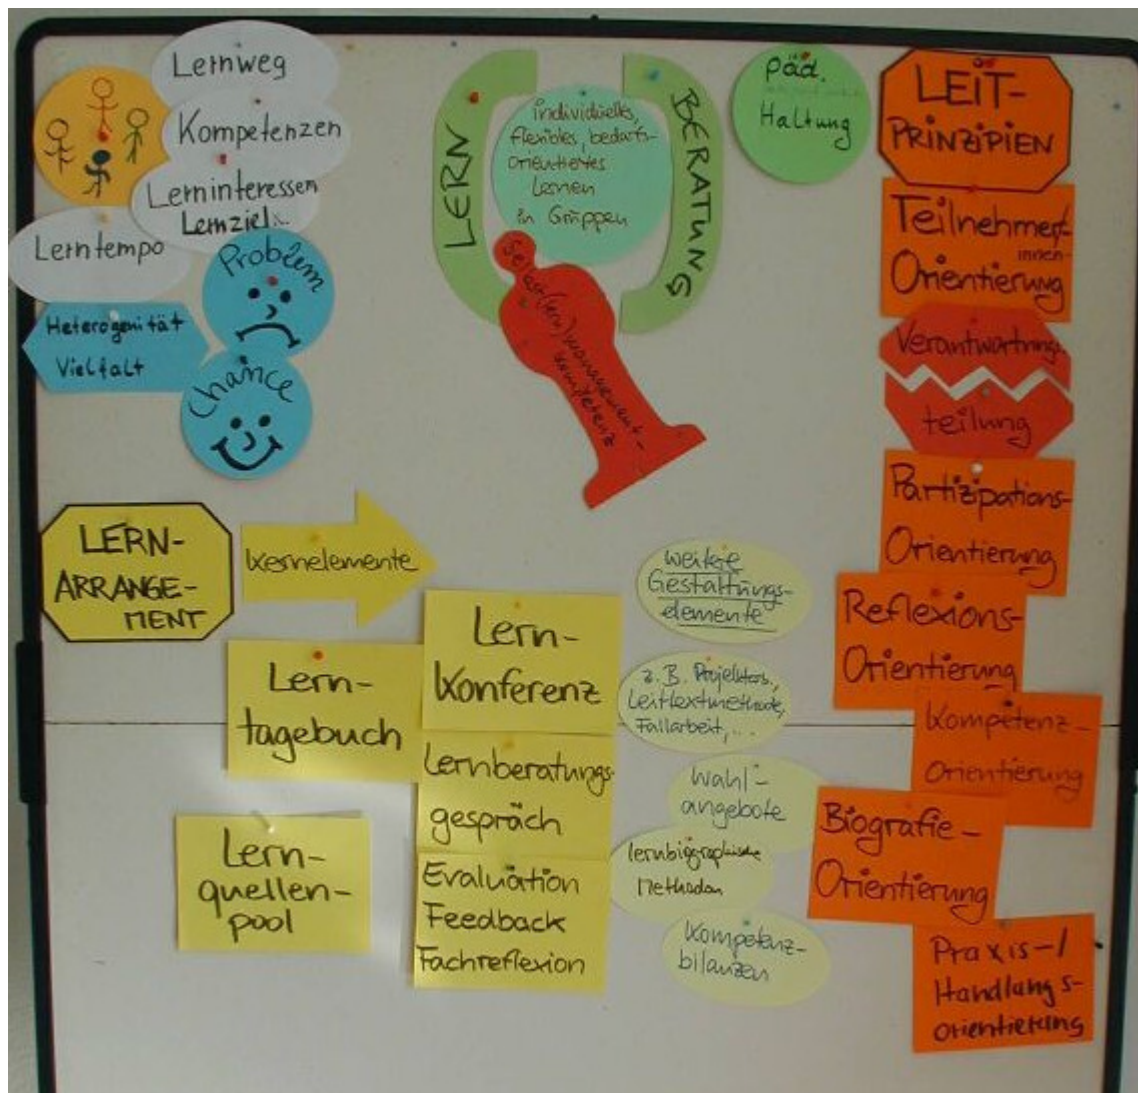 Lernweg
Kompetenzen
Lerninteressen
Lernziel...
Lerntempo
Problem
Heterogenität
Vielfalt
Chance
LERN
BERATUNG
individuelles,
flexibles, bedarfs-
orientiertes
Lernen
in Gruppen
Selbst(lern)management-
kompetenz
päd.
Haltung
LEIT-
PRINZIPIEN
Teilnehmer/
innen-
Orientierung
Verantwortungs-
teilung
Partizipations-
Orientierung
Reflexions-
Orientierung
Kompetenz-
Orientierung
Biografie-
Orientierung
Praxis-/
Handlungs-
orientierung
LERN-
ARRANGE-
MENT
Kernelemente
Lern-
tagebuch
Lern-
quellen-
pool
Lern-
Konferenz
Lernberatungs-
gespräch
Evaluation
Feedback
Fachreflexion
weitere
Gestaltungs-
elemente
z.B. Projektarb.,
Leittextmethode,
Fallarbeit,...
Wahl-
angebote
lernbiographische
Methoden
Kompetenz-
bilanzen